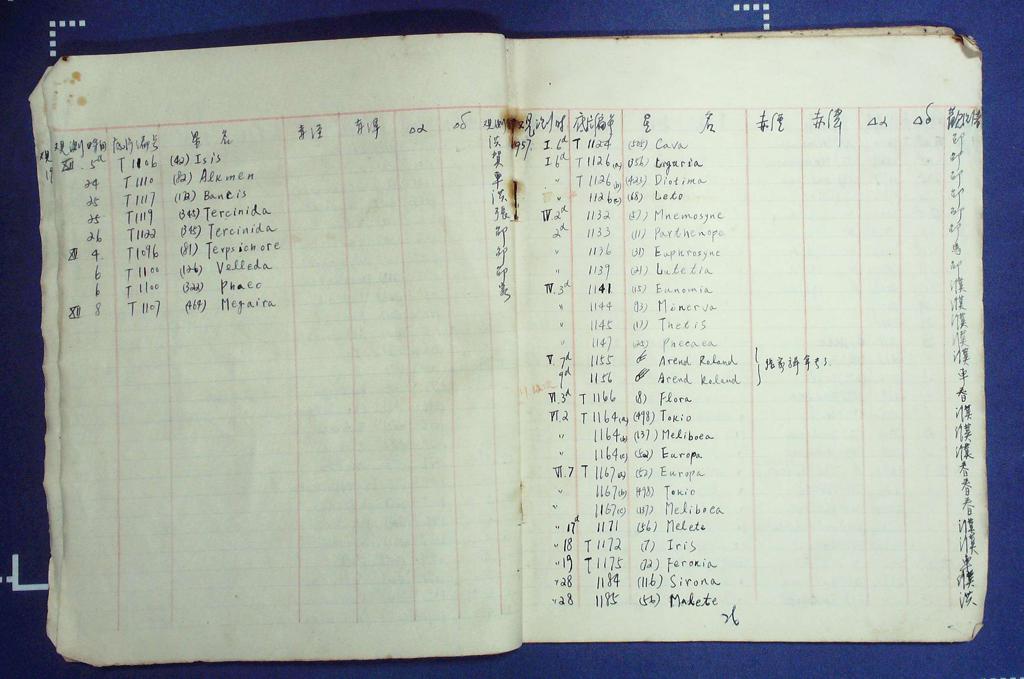 观测时间 底片编号 星名 赤经 赤纬 Δα Δδ 观测
XII 5d T1106 (42) Isis
24 T1110 (82) Alkmen 贺
25 T1117 (172) Baucis 车
25 T1119 (345) Tercinida 洪
26 T1122 (345) Tercinida 張
XI 4 T1096 (81) Terpsichore
6 T1100 (126) Velleda
6 T1100 (322) Phaeo
XII 8 T1107 (464) Megaira
观测时 底片编号 星名 赤经 赤纬 Δα Δδ
1957. I.6d T1124 (505) Cava
I6d T1126(a) (356) Liguria
〃 T1126(b) (423) Diotima
1126(c) (68) Leto
IV.2d 1132 (57) Mnemosyne
2d 1133 (11) Parthenope
〃 1136 (31) Euphrosyne
〃 1139 (21) Lutetia
IV.3d 1141 (15) Eunomia
〃 1144 (93) Minerva
〃 1145 (17) Thetis
〃 1147 (25) Phocaea
V.7d 1155 Arend Roland
9d 1156 Arend Roland
VI.3d T1166 (8) Flora
VI.2 T1164(a) (498) Tokio
〃 1164(b) (137) Meliboea
1164(c) (52) Europa
VI.7 T1167(a) (52) Europa
〃 1167(b) (498) Tokio
1167(c) (137) Meliboea
〃 17d 1171 (56) Melete
〃 18 T1172 (7) Iris
〃 19 T1175 (72) Feronia
〃 28 1184 (116) Sirona
〃 28 1185 (56) Malete
26